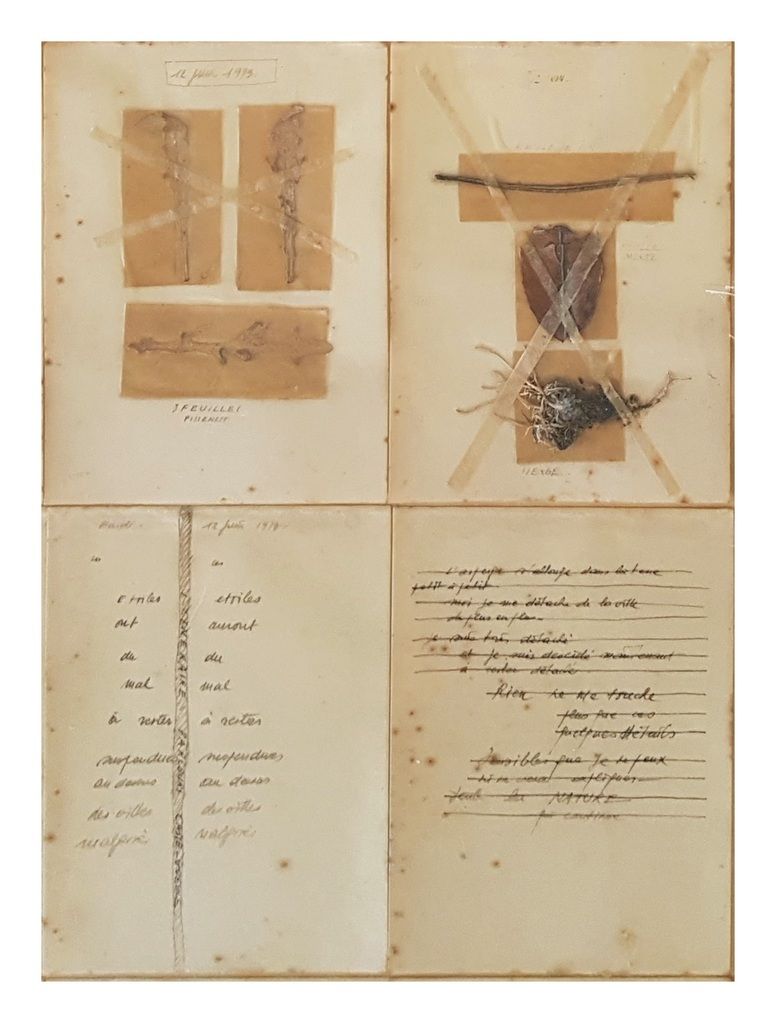 12 juin 1993
3 FEUILLES
PISSENLIT
HERBE
12 juin
les
les
etoiles
etoiles
ont
auront
du
du
mal
mal
à rester
à rester
suspendues
suspendues
au dessus
au dessus
des villes
des villes
malgrés
malgrés
L'asperge s'allonge dans la terre
petit à petit
moi je me détache de la ville
de plus en plus
je suis très détaché
et je suis décidé maintenant
à rester détaché
Rien ne me touche
plus que ces
quelques détails
sensibles que je ne peux
ni ne veux expliquer
Seule la NATURE
continue